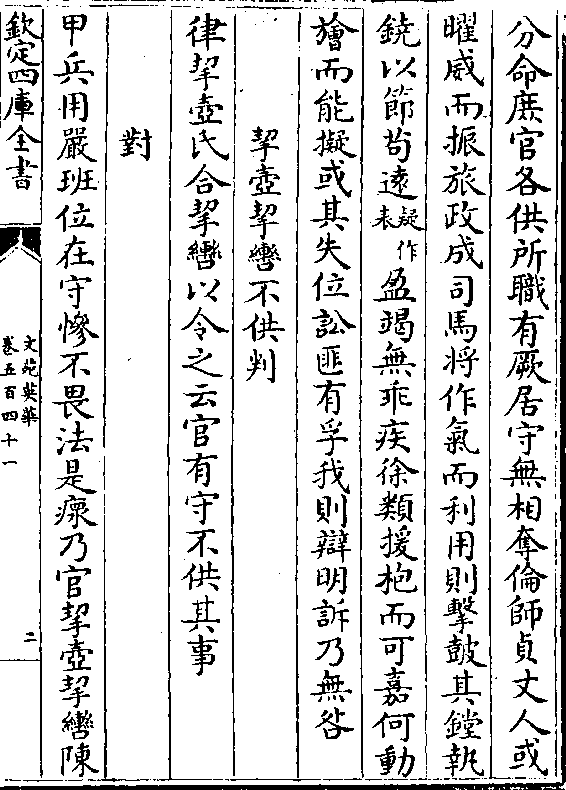 分命庶官各供所職有厥居守無相奪倫師貞丈人或
曜威而振旅政成司馬將作氣而利用則擊鼓其鏜執
鐃以節苟遠疑作表盈竭無乖疾徐類援枹而可嘉何動
旝而能擬或其失位訟匪有孚我則辯明訴乃無咎
挈壺挈轡不供判
律挈壺氏合挈轡以令之云官有守不供其事
對
甲兵用嚴班位在守慘不畏法是瘝乃官挈壺挈轡陳
欽定四庫全書
文苑英華
卷五百四十一
二